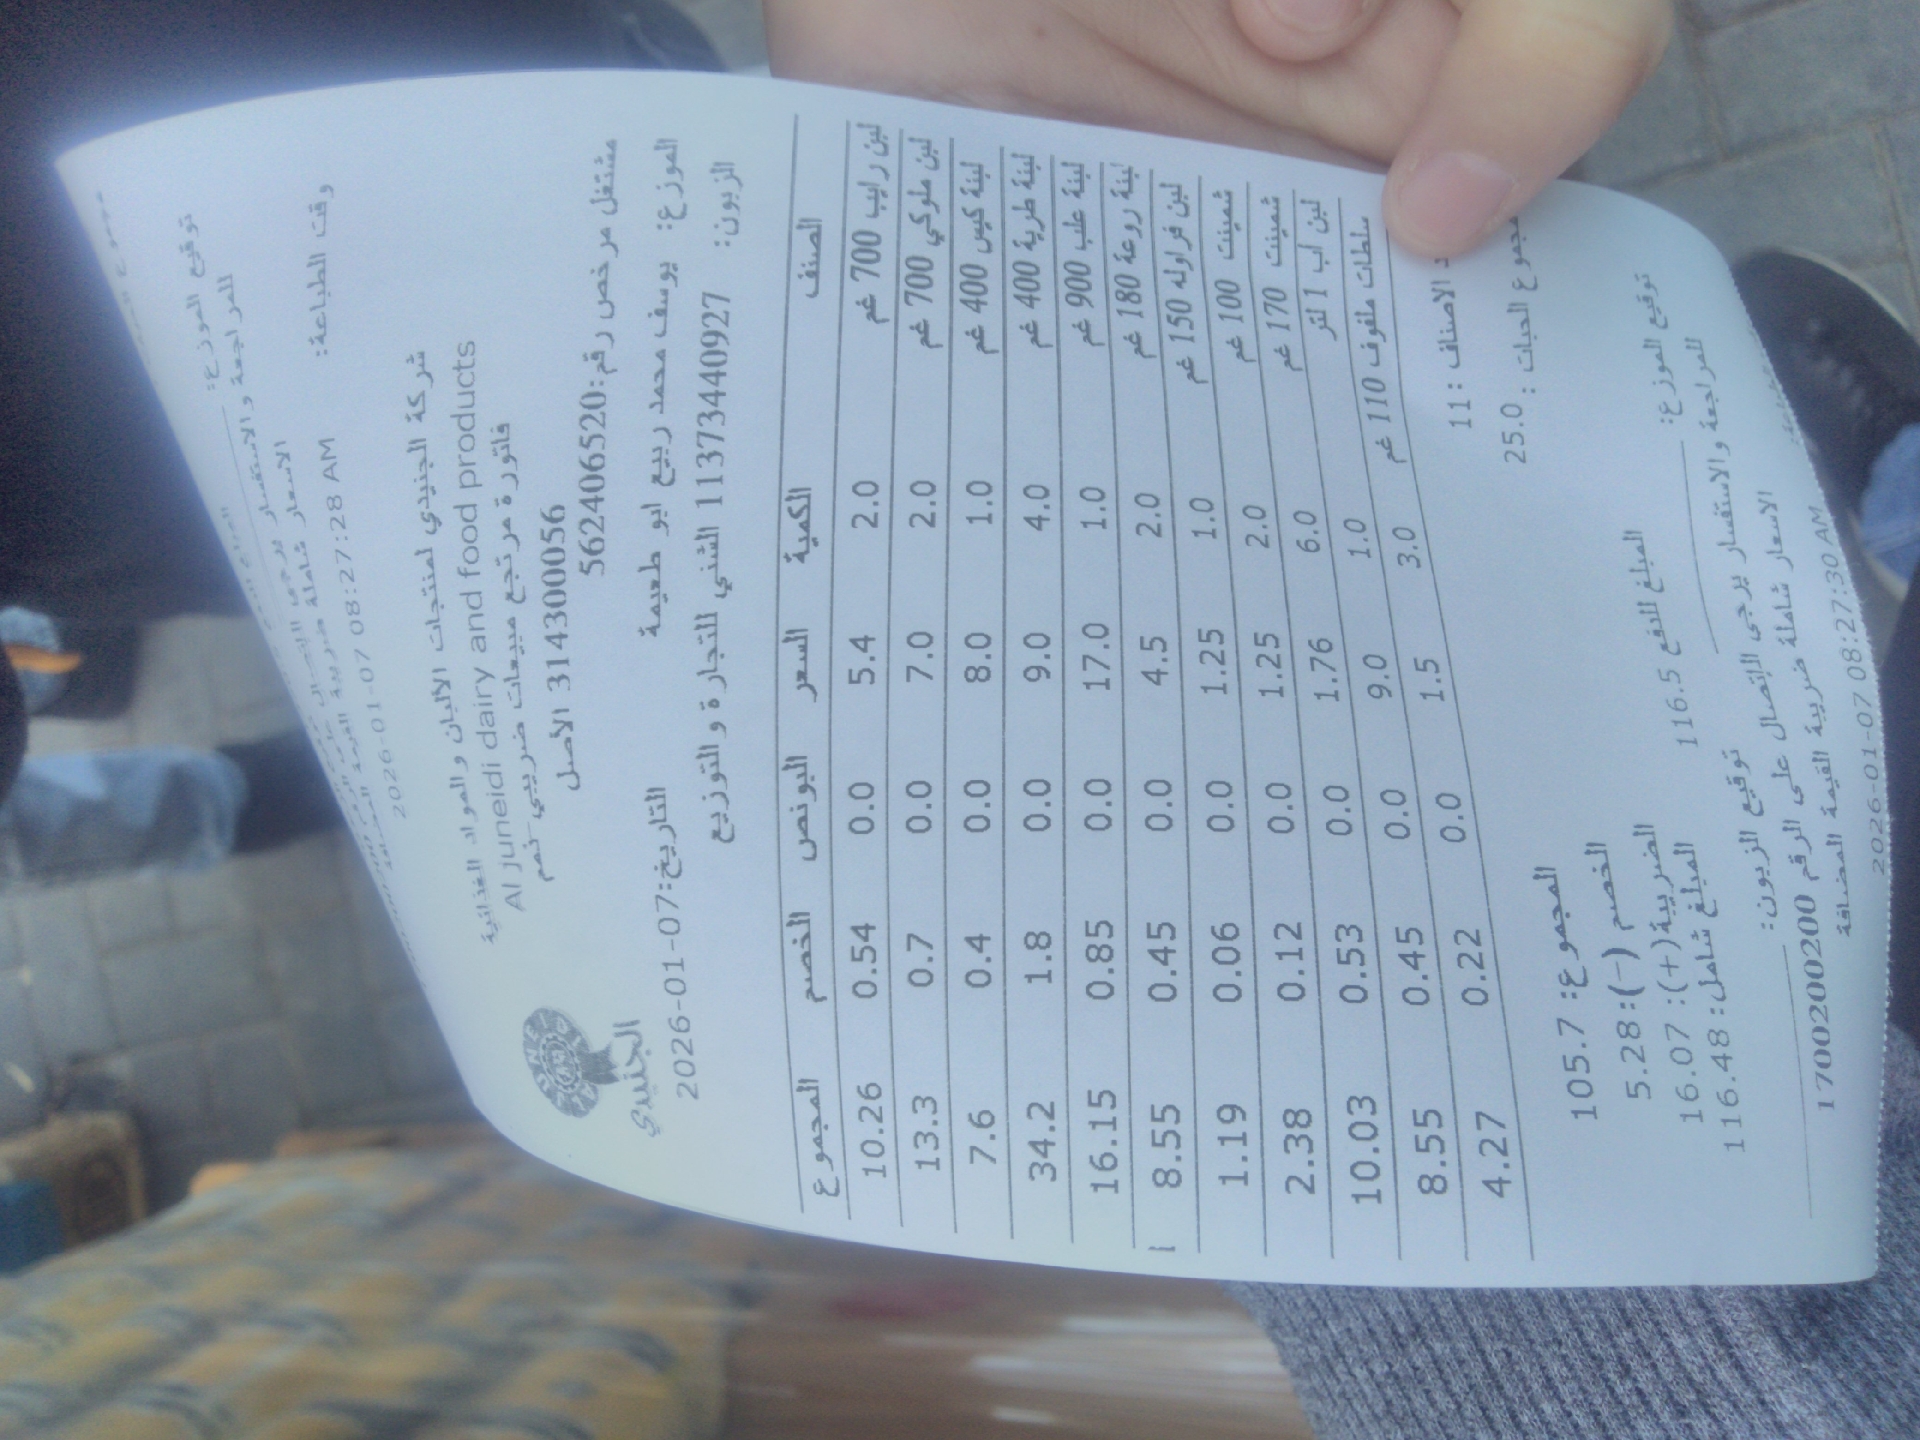 توقيع الموزع:
للمراجعة و الاستفسار يرجى
الاسعار شاملة ضريبة القيمة
وقت الطباعة: 2026-01-07 08:27:28 AM
شركة الجنيدي لمنتجات الألبان والمواد الغذائية
Al juneidi dairy and food products
فاتورة مرتجع مبيعات ضريبي-نمم
314300056 الأصل
مشتغل مرخص رقم:562406520
الجنيدي
الموزع: يوسف محمد ربيع ابو طعيمة التاريخ:2026-01-07
الزبون: 11373440927 الشني للتجارة و التوزيع
الصنف الكمية السعر البونص الخصم المجموع
لبن رايب 700 غم 2.0 5.4 0.0 0.54 10.26
لبن ملوكي 700 غم 2.0 7.0 0.0 0.7 13.3
لبنة كيس 400 غم 1.0 8.0 0.0 0.4 7.6
لبنة طرية 400 غم 4.0 9.0 0.0 1.8 34.2
لبنة علب 900 غم 1.0 17.0 0.0 0.85 16.15
لبنة روعة 180 غم 2.0 4.5 0.0 0.45 8.55
لبن فراوله 150 غم 1.0 1.25 0.0 0.06 1.19
شمينت 100 غم 2.0 1.25 0.0 0.12 2.38
شمينت 170 غم 6.0 1.76 0.0 0.53 10.03
لبن اب 1 لتر 1.0 9.0 0.0 0.45 8.55
سلطات ملفوف 110 غم 3.0 1.5 0.0 0.22 4.27
الاصناف : 11
مجموع الحبات : 25.0
المجموع: 105.7
الخصم (-): 5.28
الضريبة(+): 16.07
المبلغ شامل: 116.48
المبلغ للدفع 116.5
توقيع الموزع: توقيع الزبون:
للمراجعة والاستفسار يرجى الاتصال على الرقم 1700200200
الاسعار شاملة ضريبة القيمة المضافة
2026-01-07 08:27:30 AM